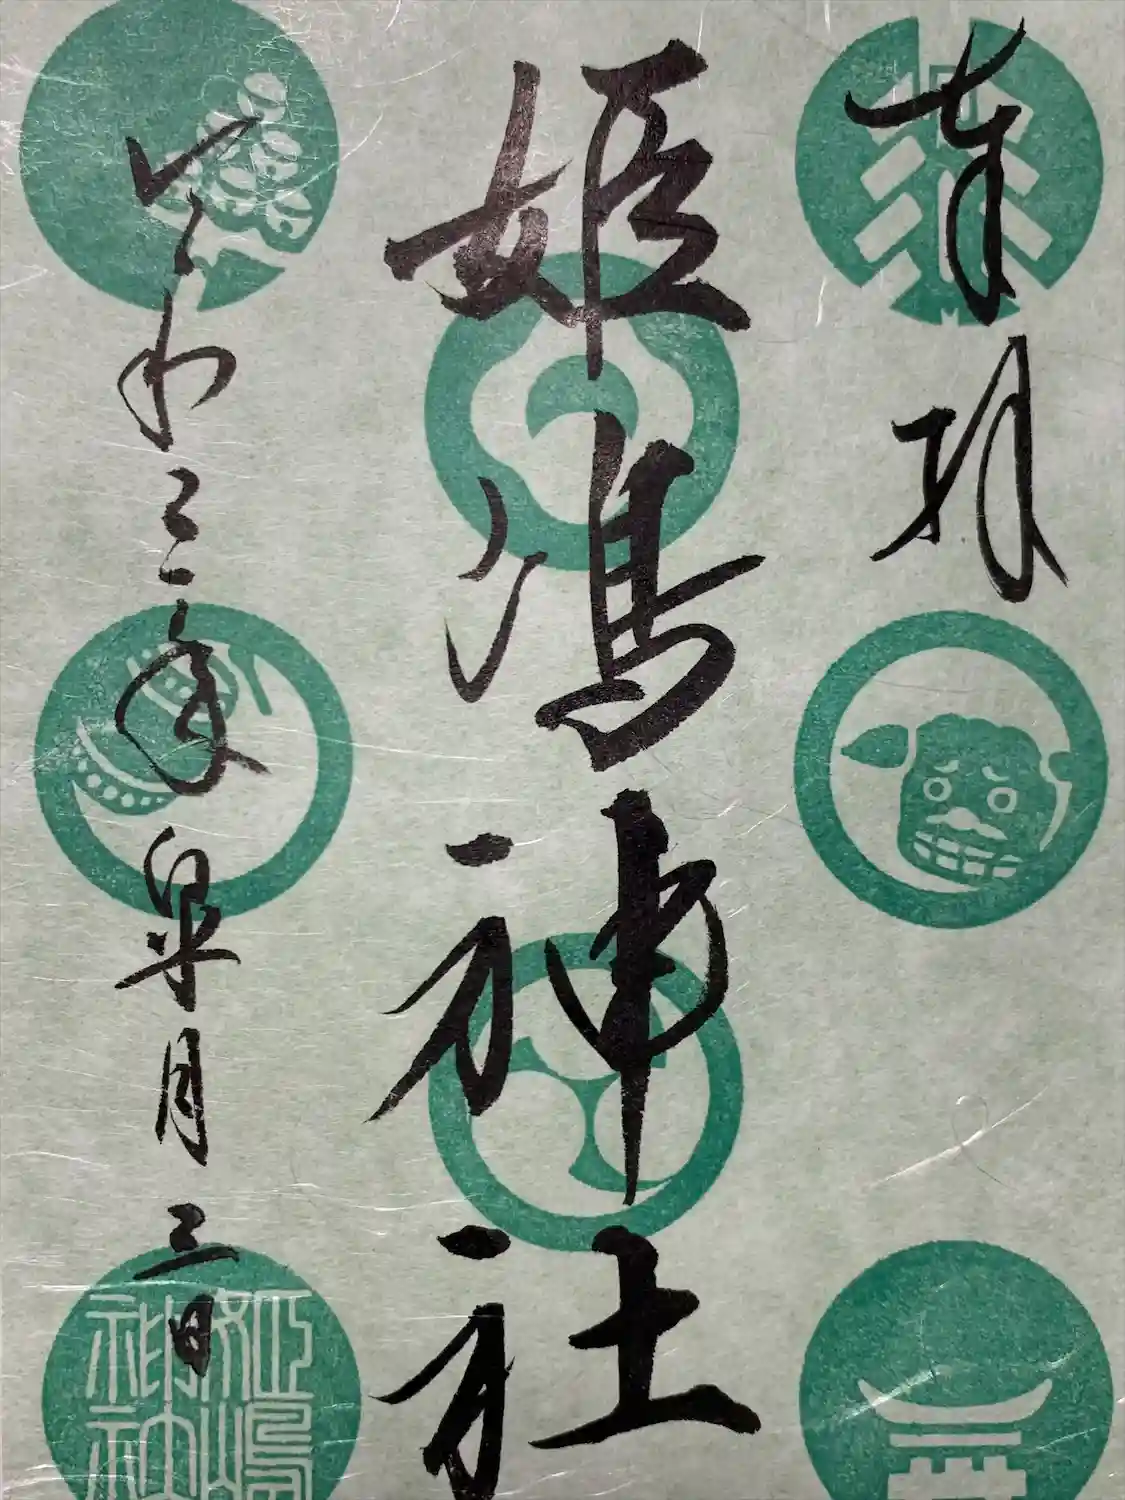 奉拝
姫嶋神社
令和三年皐月三日
姫嶋
神社